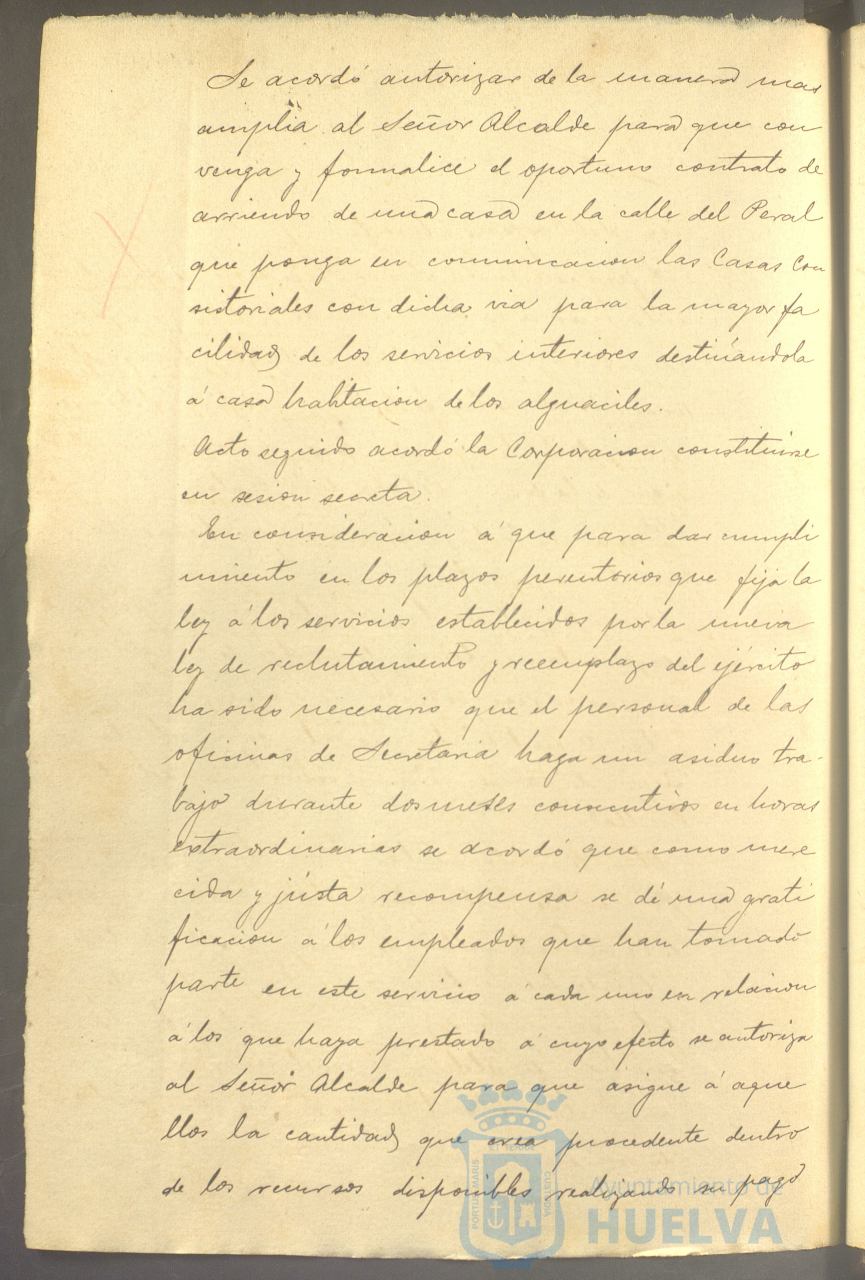 Se acordó autorizar de la manera mas
amplia al Señor Alcalde para que con
venga y formalice el oportuno contrato de
arriendo de una casa en la calle del Peral
que ponga en comunicacion las Casas Con
sistoriales con dicha via para la mayor fa
cilidad de los servicios interiores destinándola
á casa habitacion de los alguaciles.
Acto seguido acordó la Corporacion constituirse
en sesion secreta.
En consideracion á que para dar cumpli
miento en los plazos perentorios que fija la
ley á los servicios establecidos por la nueva
ley de reclutamiento y reemplazo del ejército
ha sido necesario que el personal de las
oficinas de Secretaria haga un asiduo tra-
bajo durante dos meses consecutivos en horas
extraordinarias se acordó que como mere
cida y justa recompensa se dé una grati
ficacion á los empleados que han tomado
parte en este servicio á cada uno en relacion
á los que haya prestado á cuyo efecto se autoriza
al Señor Alcalde para que asigne á aque
llos la cantidad que crea procedente dentro
de los recursos disponibles realizando su pago
Ayuntamiento de
HUELVA
PORTUS MARIS
ET TERRAE
CUSTODIA